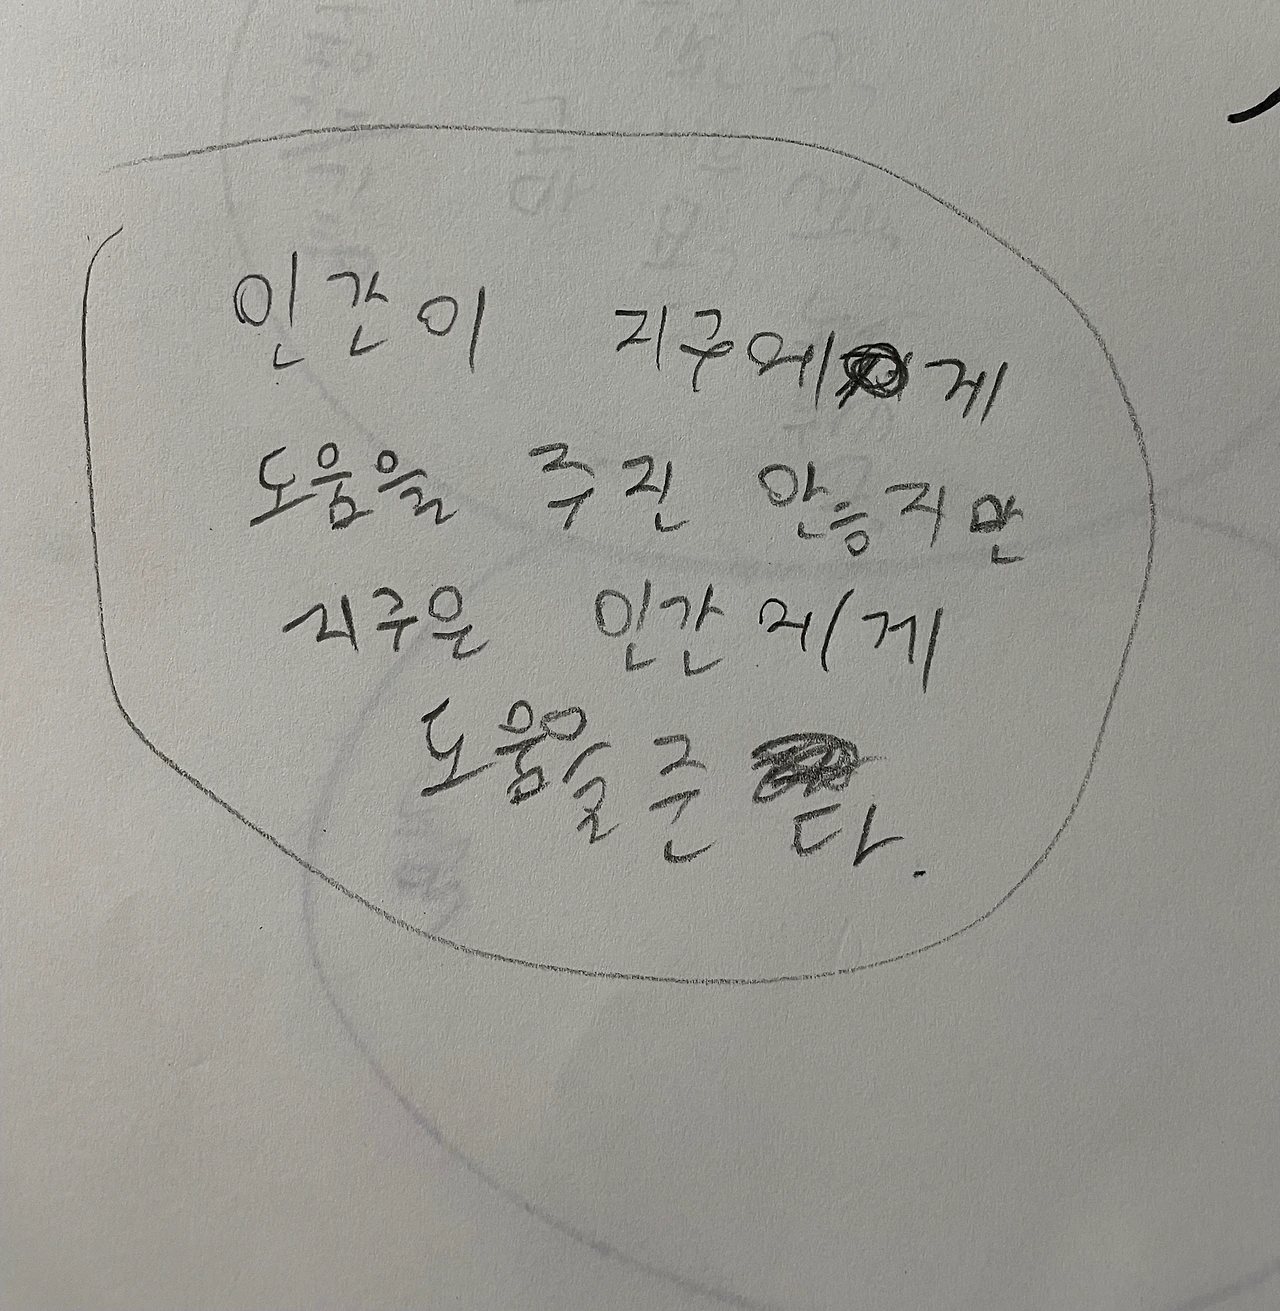 인간이 지구에게
도움을 주진 안능지만
지구은 인간에게
도움을 준 다.